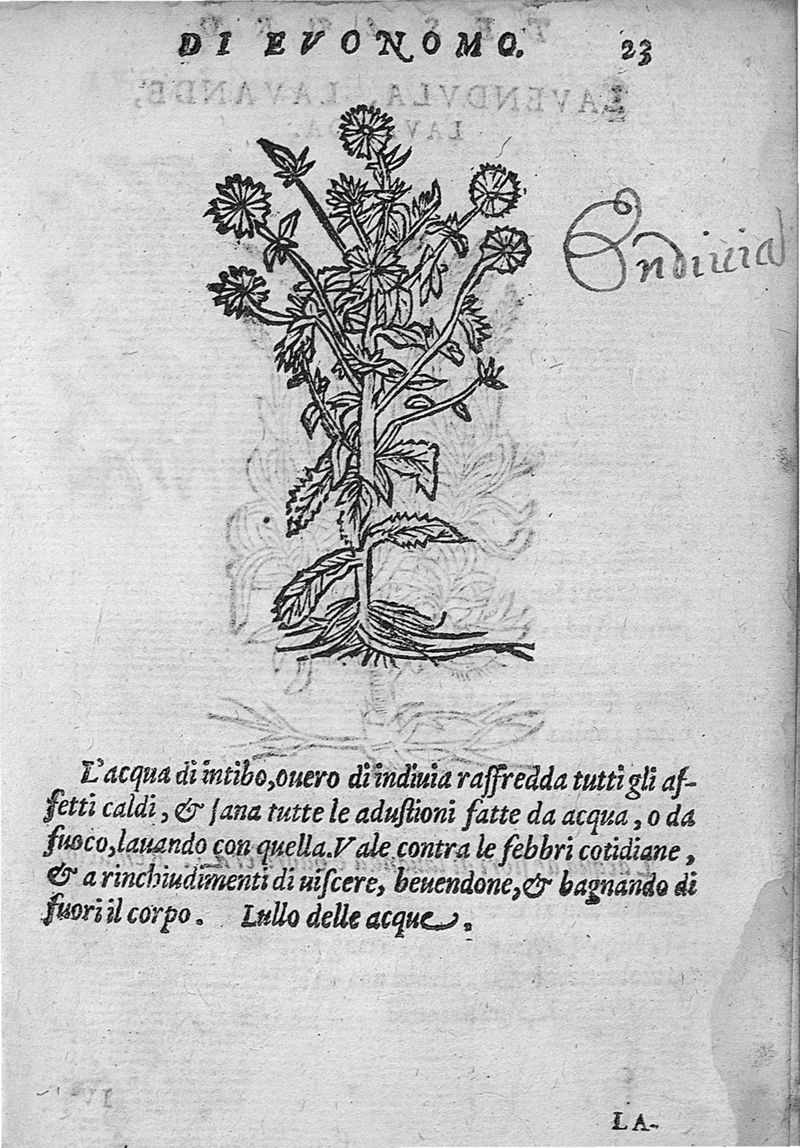 DI EVONOMO. 23
Endiuia
L'acqua di intibo, ouero di indiuia raffredda tutti gli af-
fetti caldi, & sana tutte le adustioni fatte da acqua, o da
fuoco, lauando con quella. Vale contra le febbri cotidiane,
& a rinchiudimenti di uiscere, beuendone, & bagnando di
fuori il corpo. Lullo delle acque.
LA-